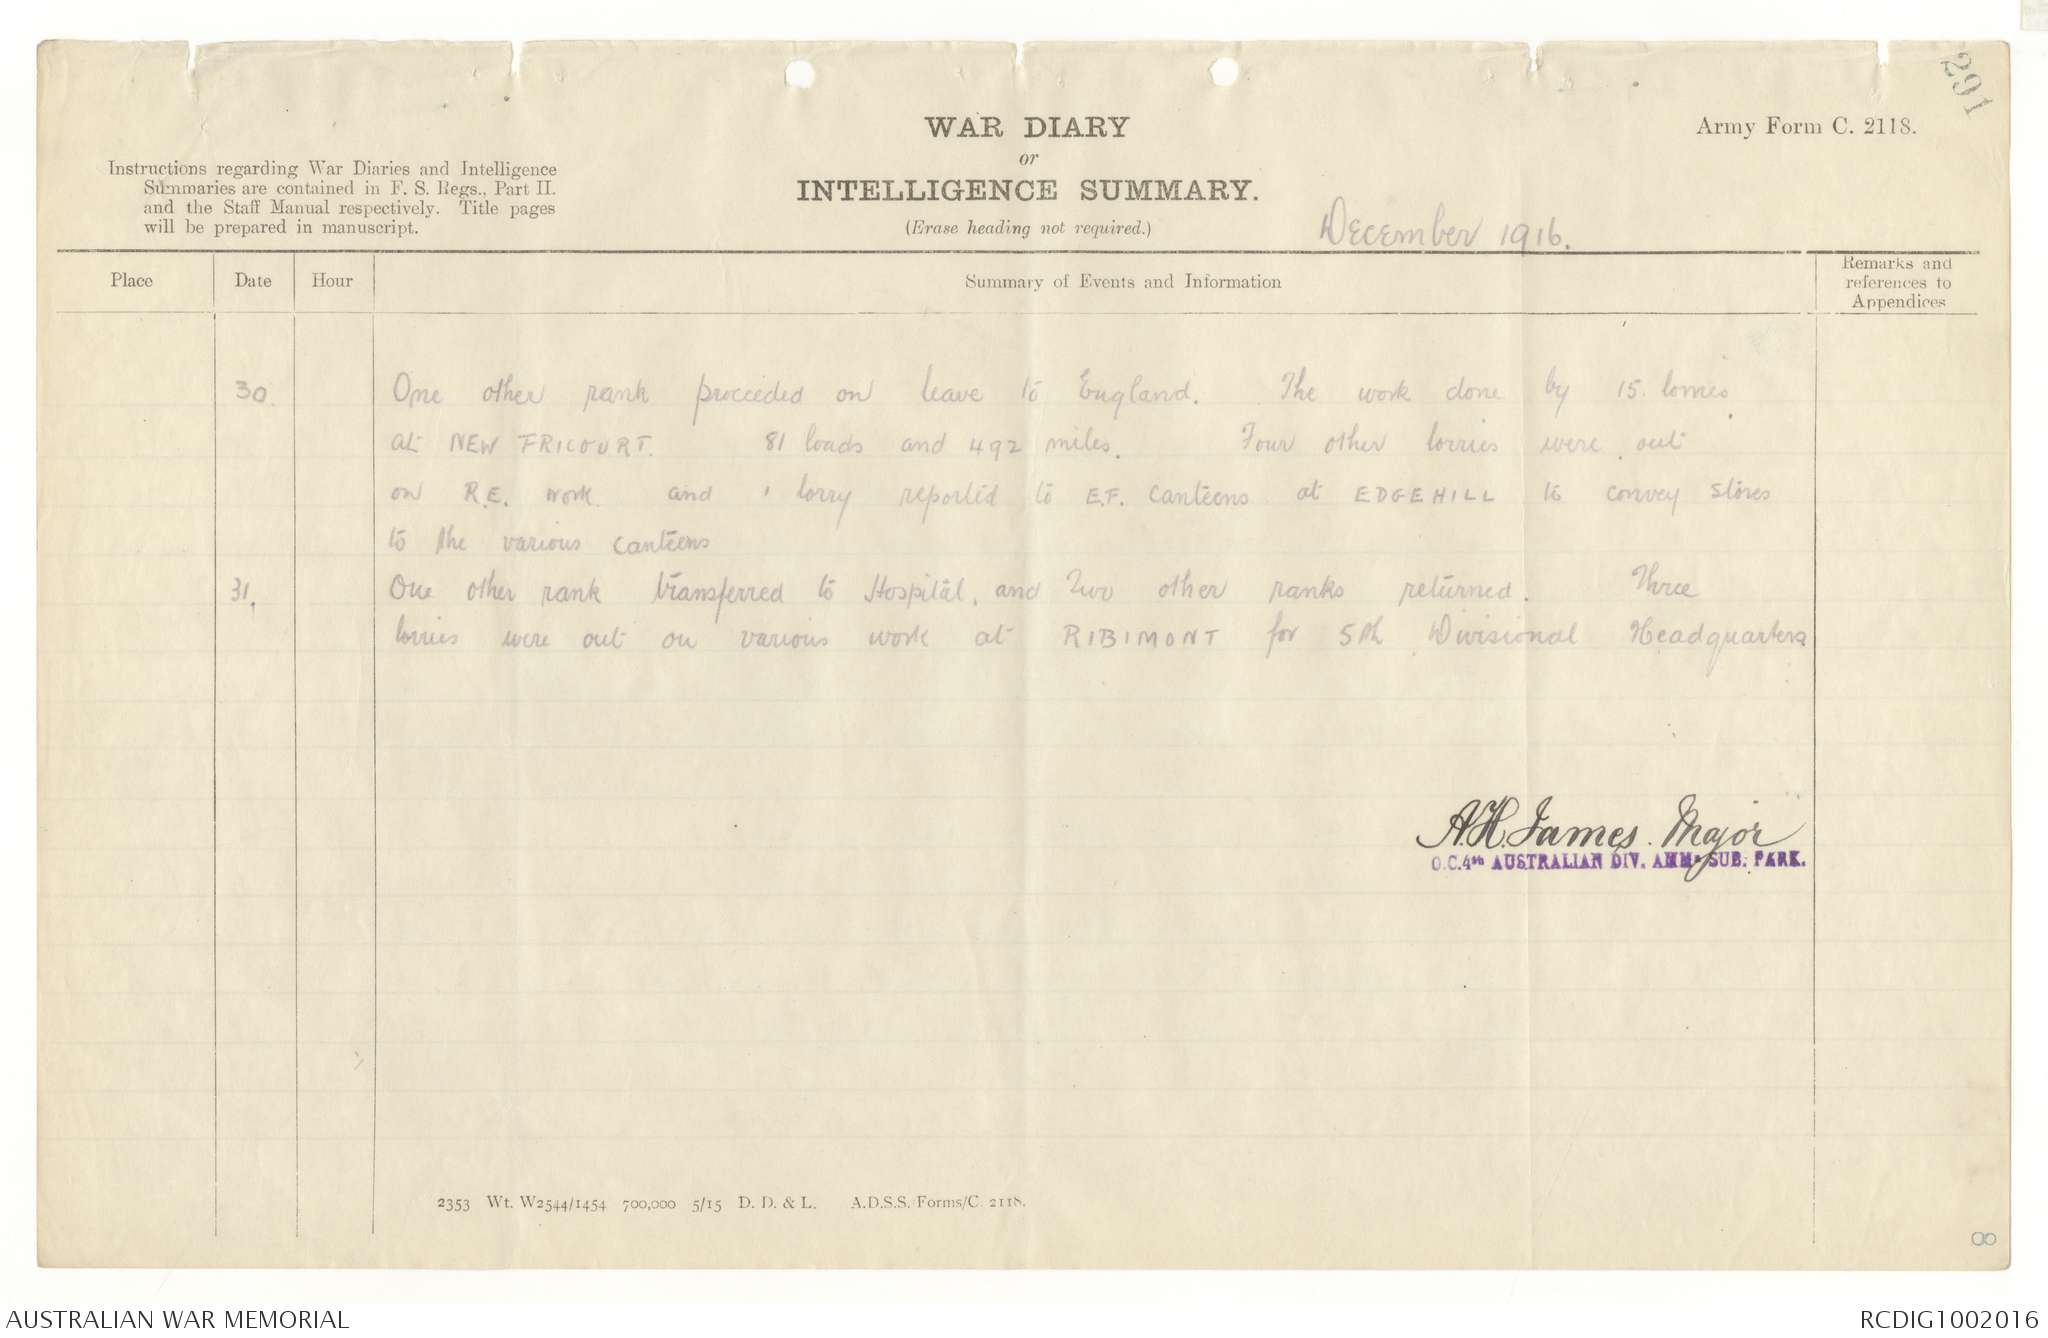 291
WAR DIARY
or
INTELLIGENCE SUMMARY.
(Erase heading not required.)
Army Form C. 2118.
Instructions regarding War Diaries and Intelligence
Summaries are contained in F. S. Regs., Part II.
and the Staff Manual respectively. Title pages
will be prepared in manuscript.
December 1916.
Place Date Hour Summary of Events and Information Remarks and
references to
Appendices
30. One other rank proceeded on leave to England. The work done by 15. lorries
at NEW FRICOURT. 81 loads and 492 miles. Four other lorries were out
on R.E. work. and 1 lorry reported to E.F. Canteens at EDGEHILL to convey stores
to the various canteens
31. One other rank transferred to Hospital, and Two other ranks returned. Three
lorries were out on various work at RIBIMONT for 5th Divisional Headquarters
A.H. James. Major
O.C. 4th AUSTRALIAN DIV. AMMn SUB. PARK.
2353 Wt. W2544/1454 700,000 5/15 D. D. & L. A.D.S.S. Forms/C. 2118.
8
AUSTRALIAN WAR MEMORIAL
RCDIG1002016